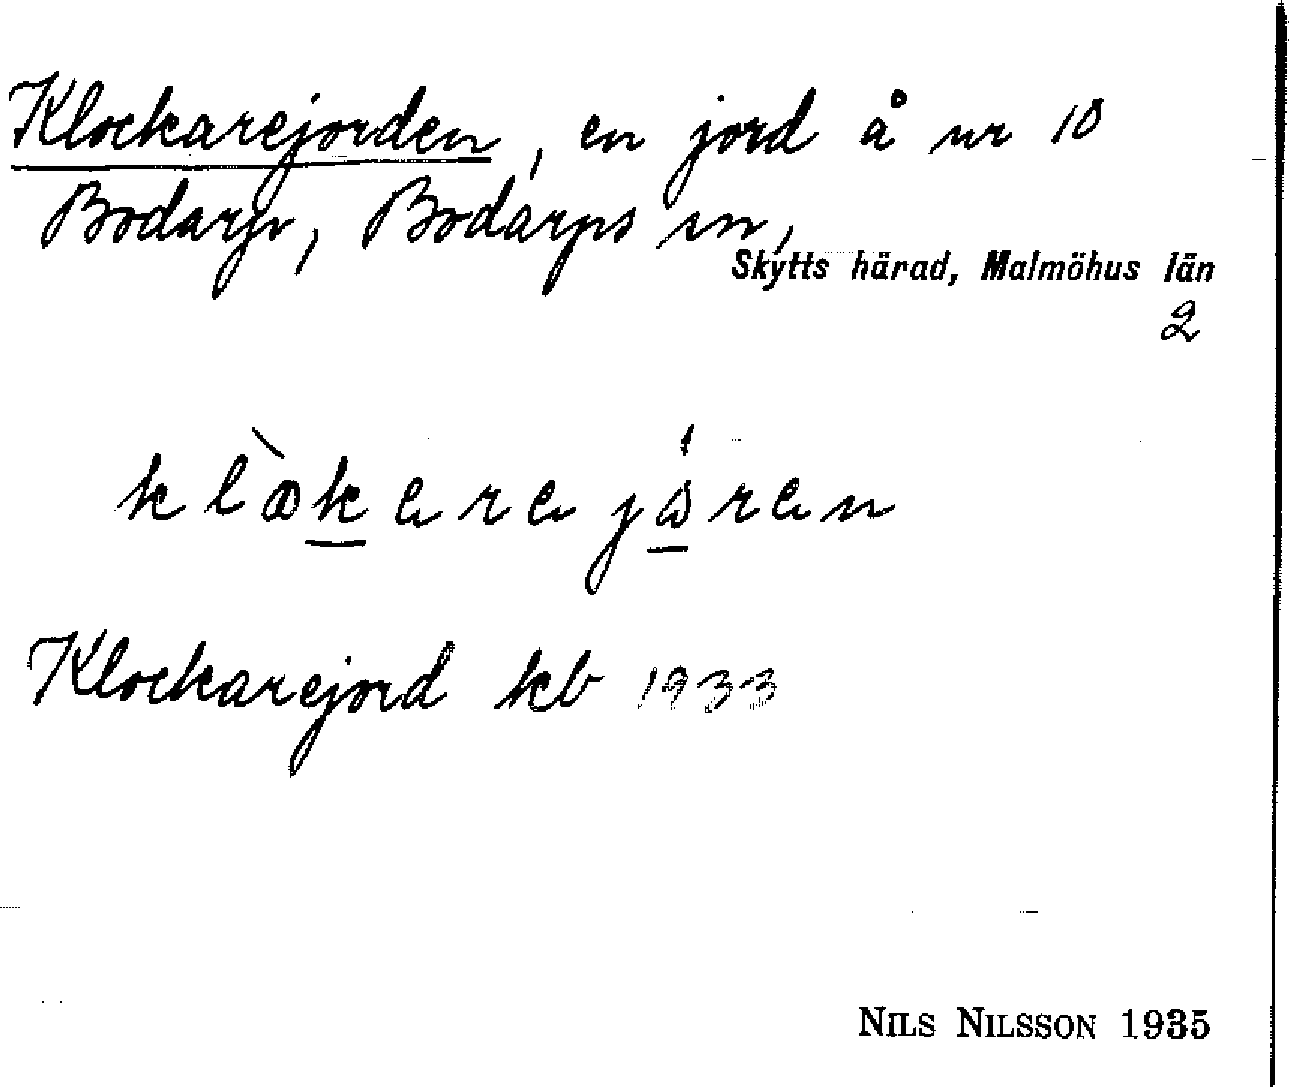 Klockarejorden, en jord å nr 10
Bodarp, Bodarps sn,
Skytts härad, Malmöhus län
2
Klockarejord kb 1933
NILS NILSSON 1935